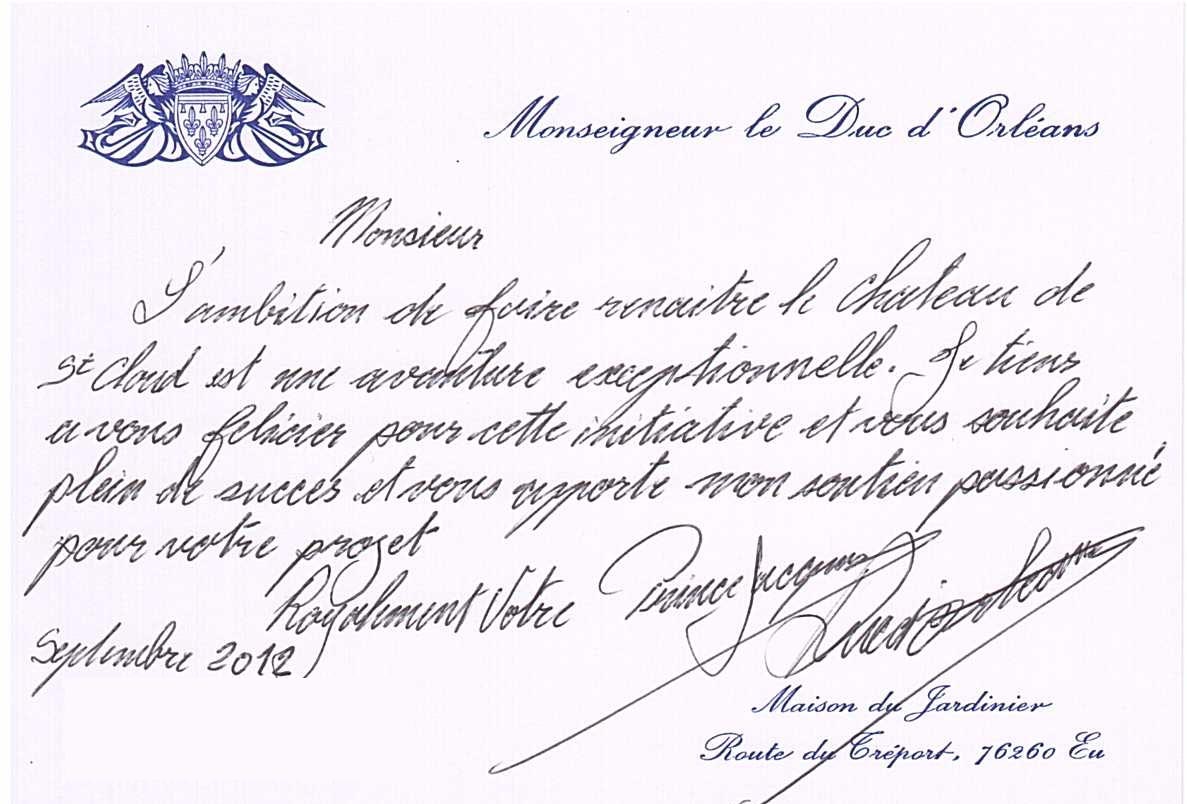 Monseigneur le Duc d'Orléans
Monsieur
L'ambition de faire renaitre le Chateau de
St Cloud est une avanture exceptionnelle. Je tiens
a vous felicier pour cette initiative et vous souhaite
plein de succes et vous apporte mon soutien passionné
pour votre projet
Royalement Votre Prince Jacques
Duc d'Orléans
Septembre 2012
Maison du Jardinier
Route du Tréport, 76260 Eu